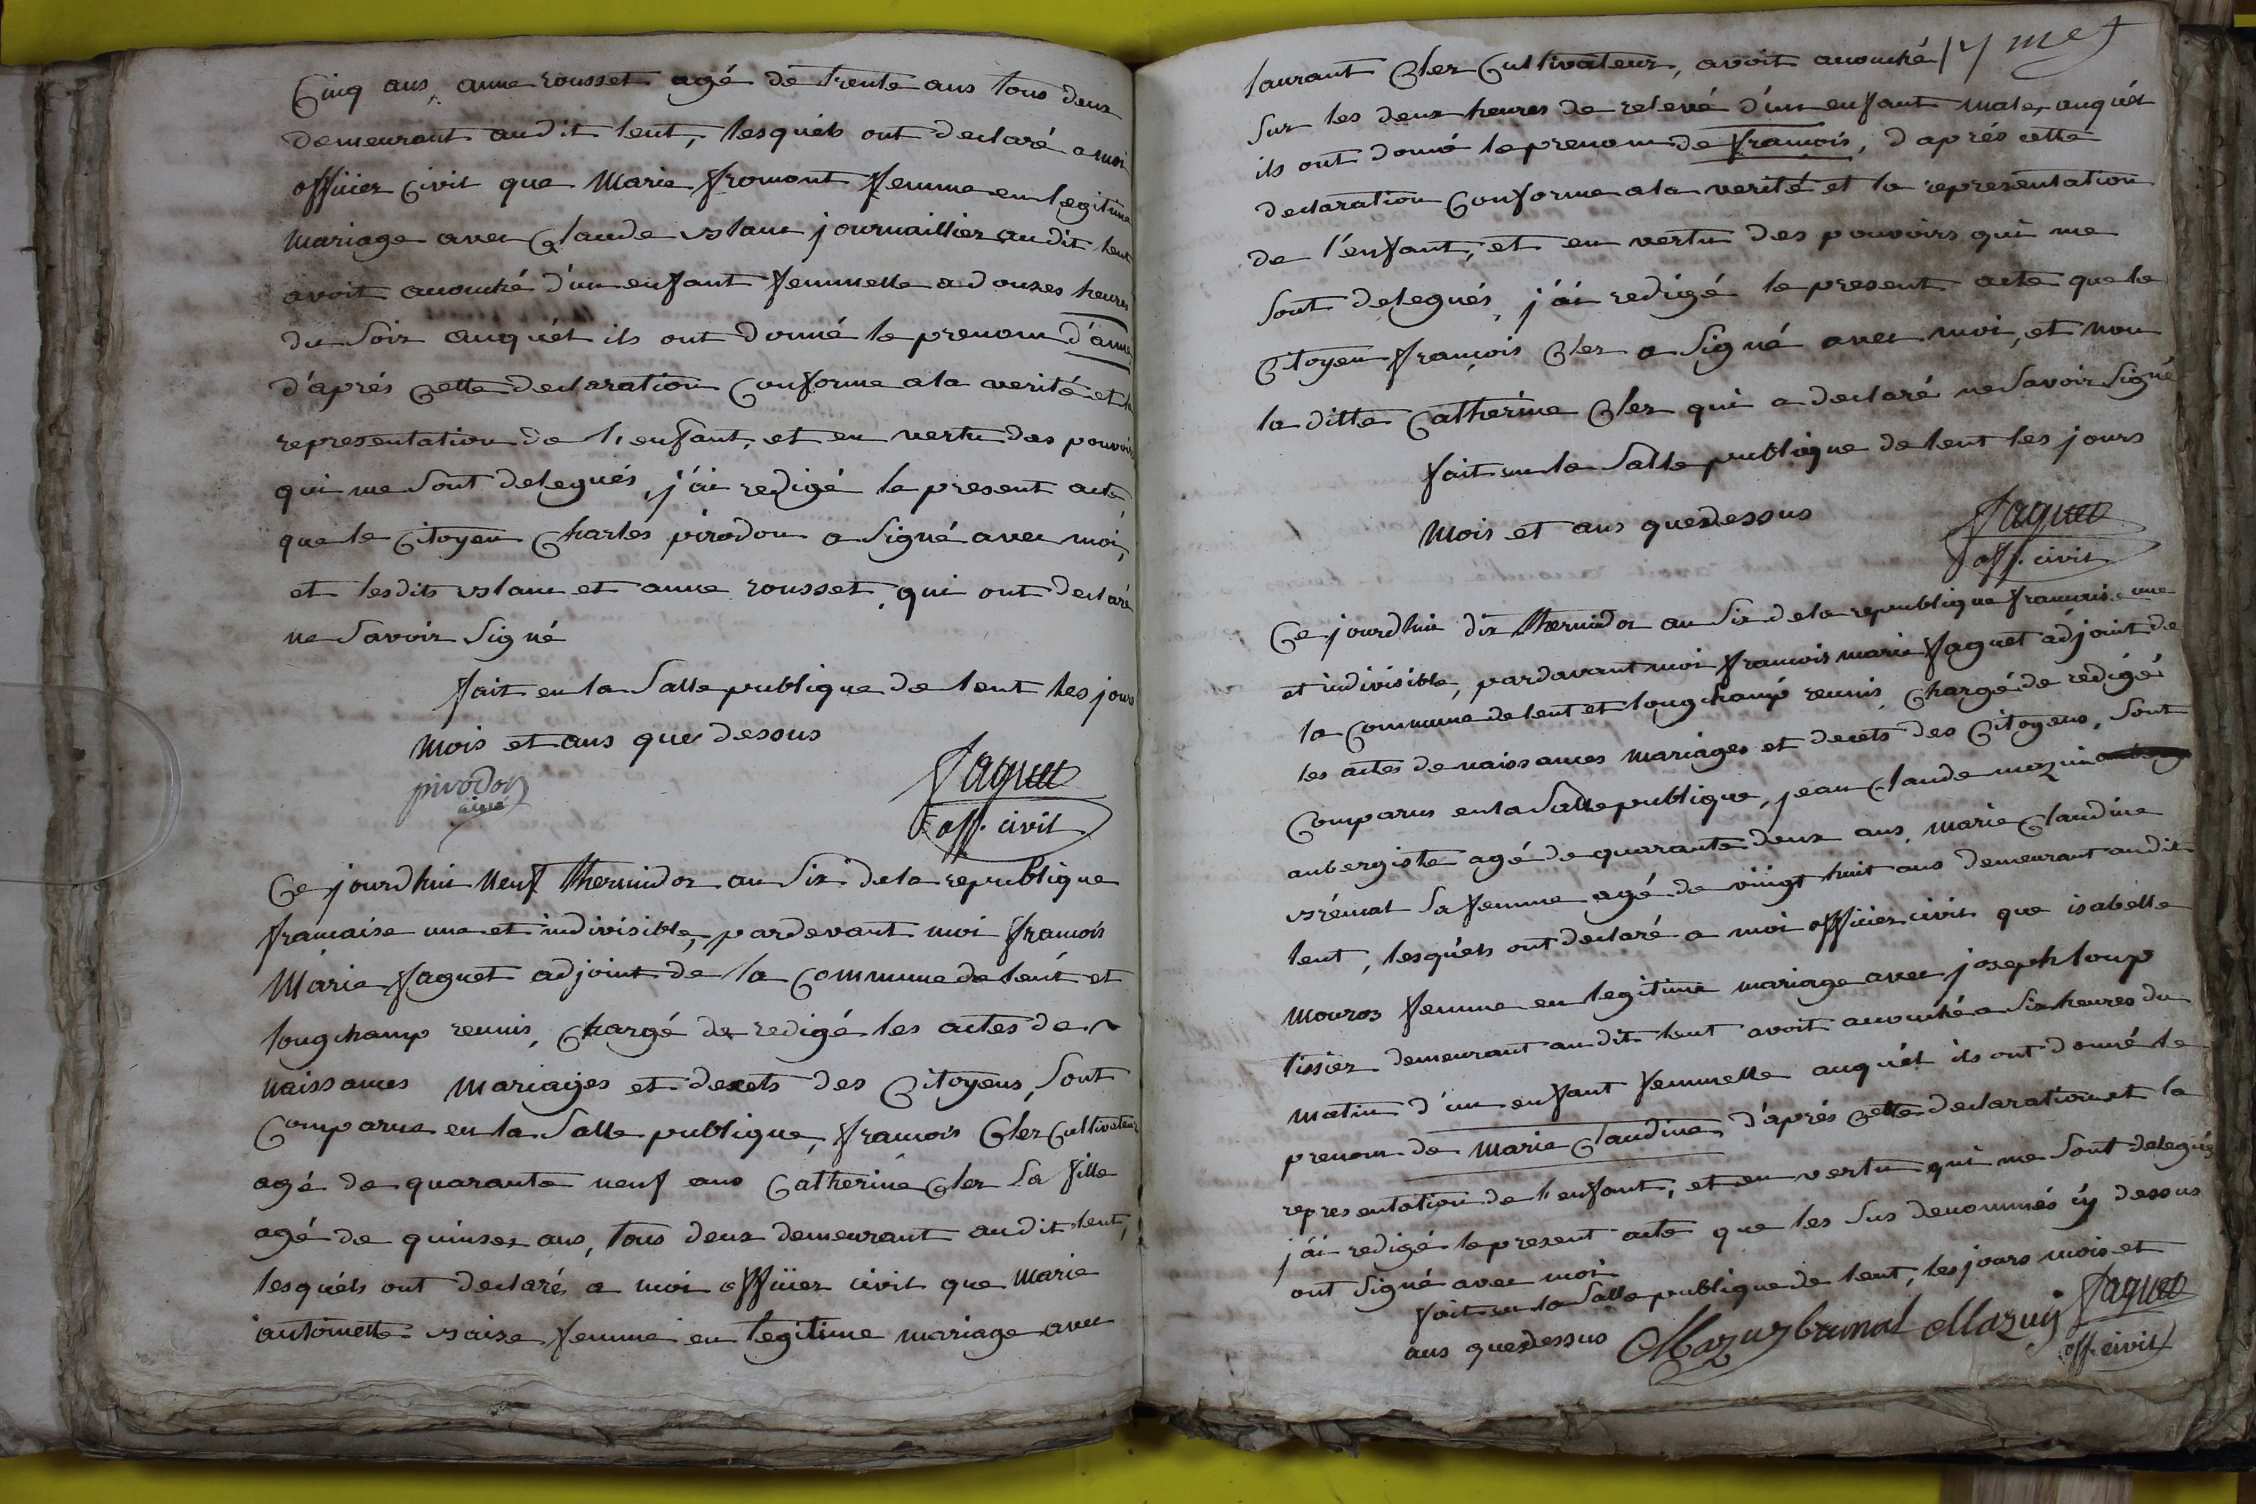 Cinq ans, anne rousset agé de trente ans tous deux
demeurant audit lent, lesquéls ont declaré a moi
officier civil que Marie fromont femme en legitime
mariage avec Claude journaillier audit lent
avoit acouché d'un enfant femmelle a douses heures
du soir auquél ils ont donné le prenom d'anne
d'aprés cette declaration conforme a la verité et la
representation de l'enfant, et en vertu des pouvoirs
qui me sont delegués, j'ai redigé le present acte
que le Citoyen Charles pirodon a signé avec moi,
et lesdits et anne rousset, qui ont declaré
ne savoir signé
fait en la salle publique de lent les jours
mois et ans que dessus
pirodon
ainé
faguet
off. civil
Ce jourdhui neuf thermidor an six de la republique
francaise une et indivisible, pardevant moi francois
Marie faguet adjoint de la commune de lent et
longchamp reunis, chargé de redigé les actes de
naissances mariages et decets des Citoyens, sont
comparus en la salle publique, francois Cler Cultivateur
agé de quarante neuf ans Catherine Cler sa fille
agé de quinses ans, tous deux demeurant audit lent,
lesquéls ont declaré a moi officier civil que Marie
antoinette femme en legitime mariage avec
laurant Cler Cultivateur, avoit acouché
sur les deux heures de relevé d'un enfant male, auquél
ils ont donné le prenom de francois, d'aprés cette
declaration conforme a la verité et la representation
de l'enfant, et en vertu des pouvoirs qui me
sont delegués, j'ai redigé le present acte que le
Citoyen françois Cler a signé avec moi, et non
la ditte Catherine Cler qui a declaré ne savoir signé
fait en la salle publique de lent les jours
mois et ans que dessus
faguet
off. civil
Ce jourdhui dix thermidor an six de la republique francaise une
et indivisible, pardavant moi francois marie faguet adjoint de
la commune de lent et longchamp reunis, chargé de redigé
les actes de naissances mariages et decets des Citoyens, sont
comparus en la salle publique, jean Claude mazui
aubergiste agé de quarante deux ans, marie Claudine
brunal sa femme agé de vingt huit ans demeurant audit
lent, lesquéls ont declaré a moi officier civil que isabelle
femme en legitime mariage avec joseph loup
tissier demeurant audit lent avoit acouché a six heures du
matin d'un enfant femmelle auquél ils ont donné le
prenom de marie Claudine, d'aprés cette declaration et la
representation de l'enfant, et en vertu qui me sont delegués
j'ai redigé le present acte que les sus denommés cy dessus
ont signé avec moi
fait en la salle publique de lent, les jours mois et
ans que dessus Mazuy brunal Mazuy faguet
off. civil